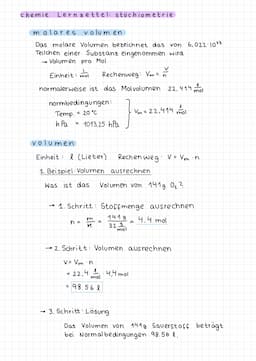 chemie Lernzettel stöchiometrie
molares volumen
Das molare Volumen bezeichnet das von 6,022·10²³
Teilchen einer Substanz eingenommen wird
→ Volumen pro Mol
Einheit: l/mol Rechenweg: Vm = V/n
normalerweise ist das Molvolumen 22,414 l/mol
normbedingungen:
Temp. = 20°C
hPa = 1013,25 hPa
Vm = 22,414 l/mol
volumen
Einheit: l (Lieter) Rechenweg: V = Vm · n
1. Beispiel: Volumen ausrechnen
Was ist das Volumen von 141g O₂?
→ 1. Schritt: Stoffmenge ausrechnen
n = m/M = 141g / 32 g/mol = 4.4 mol
→ 2. Schritt: Volumen ausrechnen
V = Vm · n
= 22,4 l/mol · 4,4 mol
= 98.56 l
→ 3. Schritt: Lösung
Das Volumen von 141g Sauerstoff beträgt
bei Normalbedingungen 98.56 l.